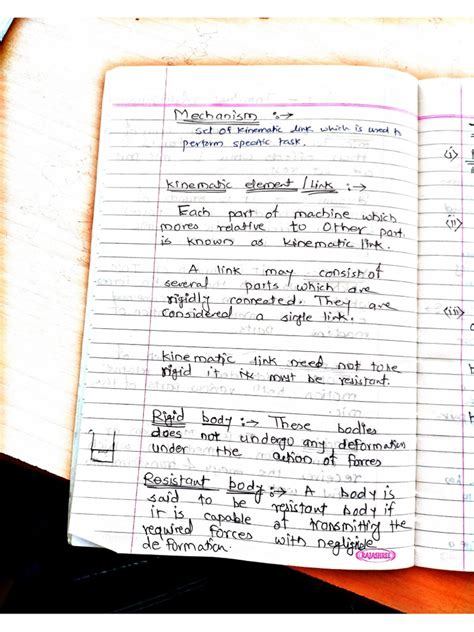 Mechanism :→
set of kinematic link which is used to
perform specific task.
kinematic element / Link :→
Each part of machine which
moves relative to other part
is known as kinematic link.
A link may consist of
several parts which are
rigidly connected. They are
considered a single link.
kinematic link need not to be
rigid it must be resistant.
Rigid body :→ These bodies
does not undergo any deformation
under the action of forces
Resistant body :→ A body is
said to be resistant body if
it is capable of transmitting the
required forces with negligible
deformation.
RAJASHREE
(i)
(ii)
(iii)